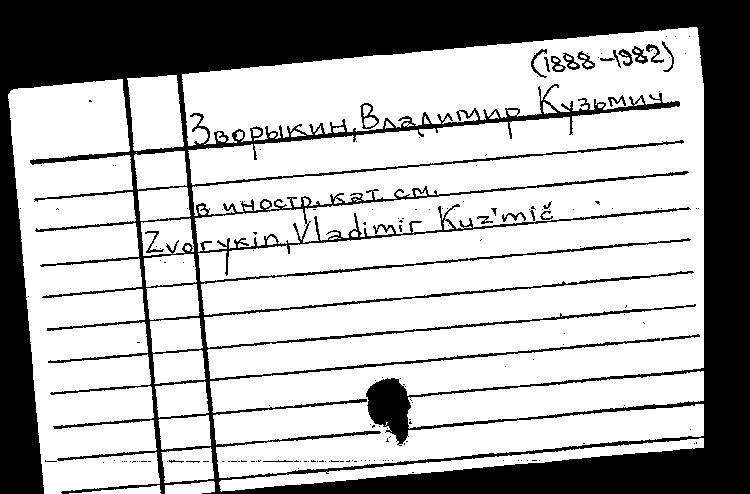 (1888-1982)
Зворыкин, Владимир Кузьмич
в иностр. кат. см.
Zvorykin, Vladimir Kuz'mič